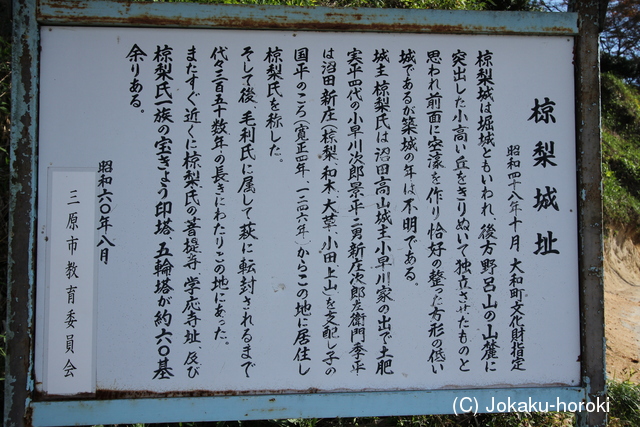 椋梨城址
昭和四十八年十月 大和町文化財指定
椋梨城は堀城ともいわれ、後方野呂山の山麓に
突出した小高い丘をきりぬいて独立させたものと
思われ前面に空濠を作り恰好の整った方形の低い
城であるが築城の年は不明である。
城主椋梨氏は沼田高山城主小早川家の出で土肥
実平四代の小早川次郎景平二男新庄次郎左衛門季平
は沼田新庄(椋梨、和木、大草、小田上山)を支配し子の
国平のころ(寛正四年、一二四六年)からこの地に居住し
椋梨氏を称した。
そして後、毛利氏に属して萩に転封されるまで
代々三百五十数年の長きにわたりこの地にあった。
またすぐ近くに椋梨氏の菩提寺、学応寺址、及び
椋梨氏一族の宝きょう印塔、五輪塔が約六〇基
余りある。
昭和六〇年八月
三原市教育委員会
(C) Jokaku-horoki